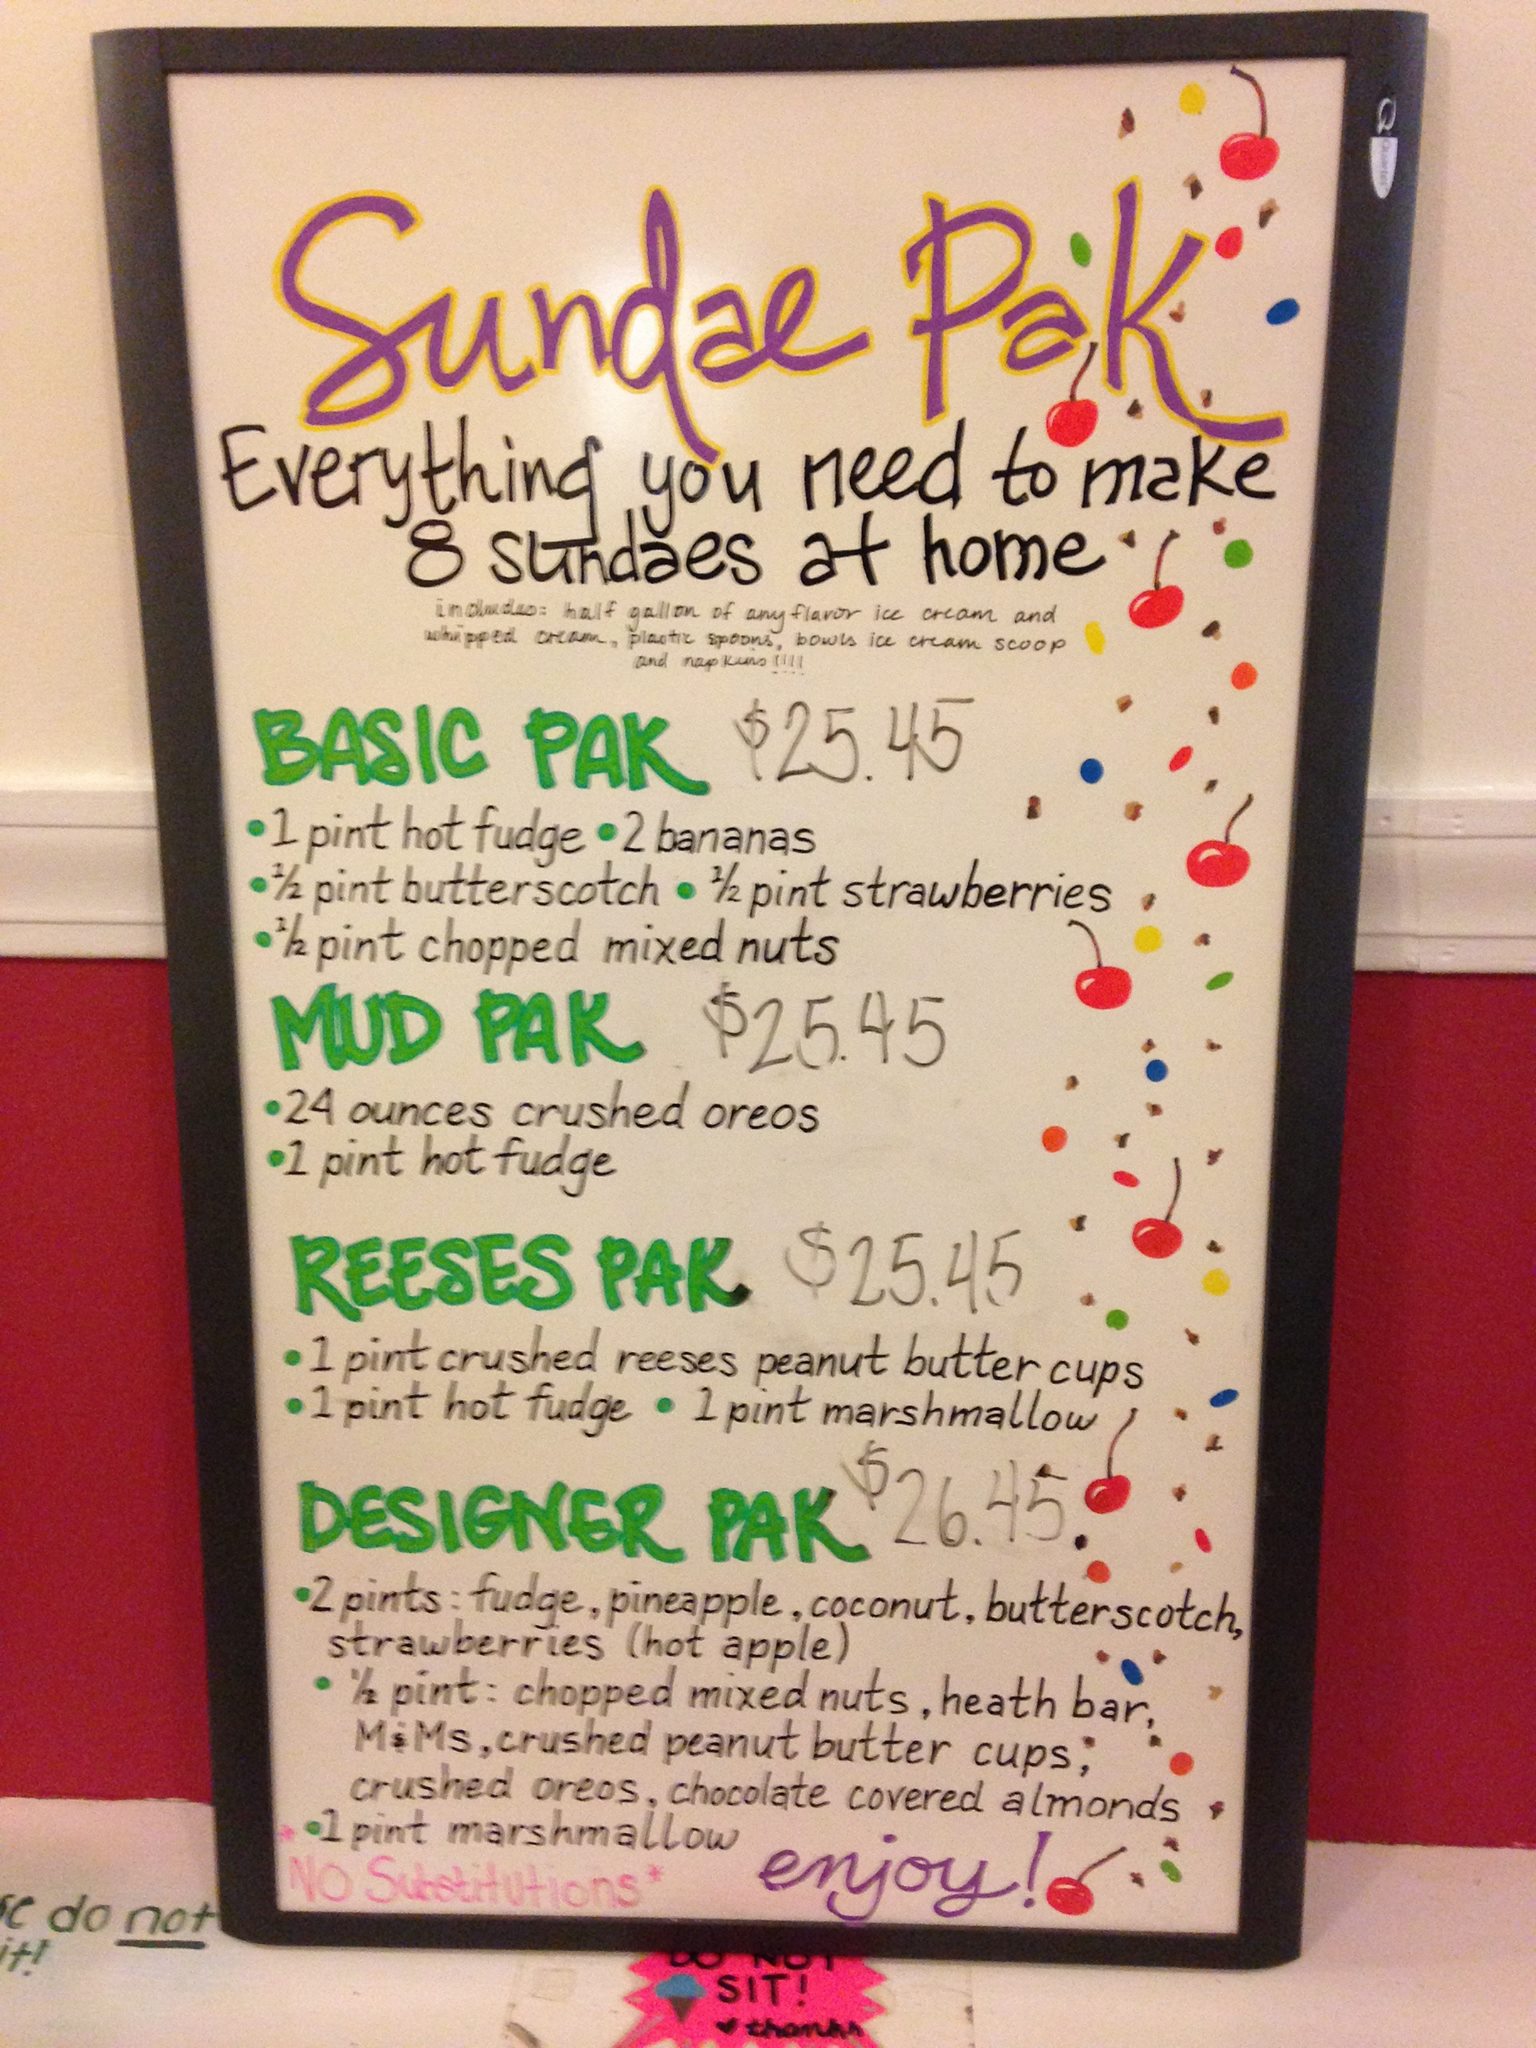 Sundae Pak
Everything you need to make
8 sundaes at home
includes: half gallon of any flavor ice cream and
whipped cream, plastic spoons, bowls ice cream scoop
and napkins!!!!
BASIC PAK $25.45
•1 pint hot fudge •2 bananas
•1/2 pint butterscotch • 1/2 pint strawberries
•1/2 pint chopped mixed nuts
MUD PAK $25.45
•24 ounces crushed oreos
•1 pint hot fudge
REESES PAK $25.45
•1 pint crushed reeses peanut butter cups
•1 pint hot fudge • 1 pint marshmallow
DESIGNER PAK $26.45
•2 pints: fudge, pineapple, coconut, butterscotch,
strawberries (hot apple)
• 1/2 pint: chopped mixed nuts, heath bar,
M&Ms, crushed peanut butter cups,
crushed oreos, chocolate covered almonds
•1 pint marshmallow
*NO Substitutions*
enjoy!
do not
it!
DO NOT
SIT!
♥ thanks